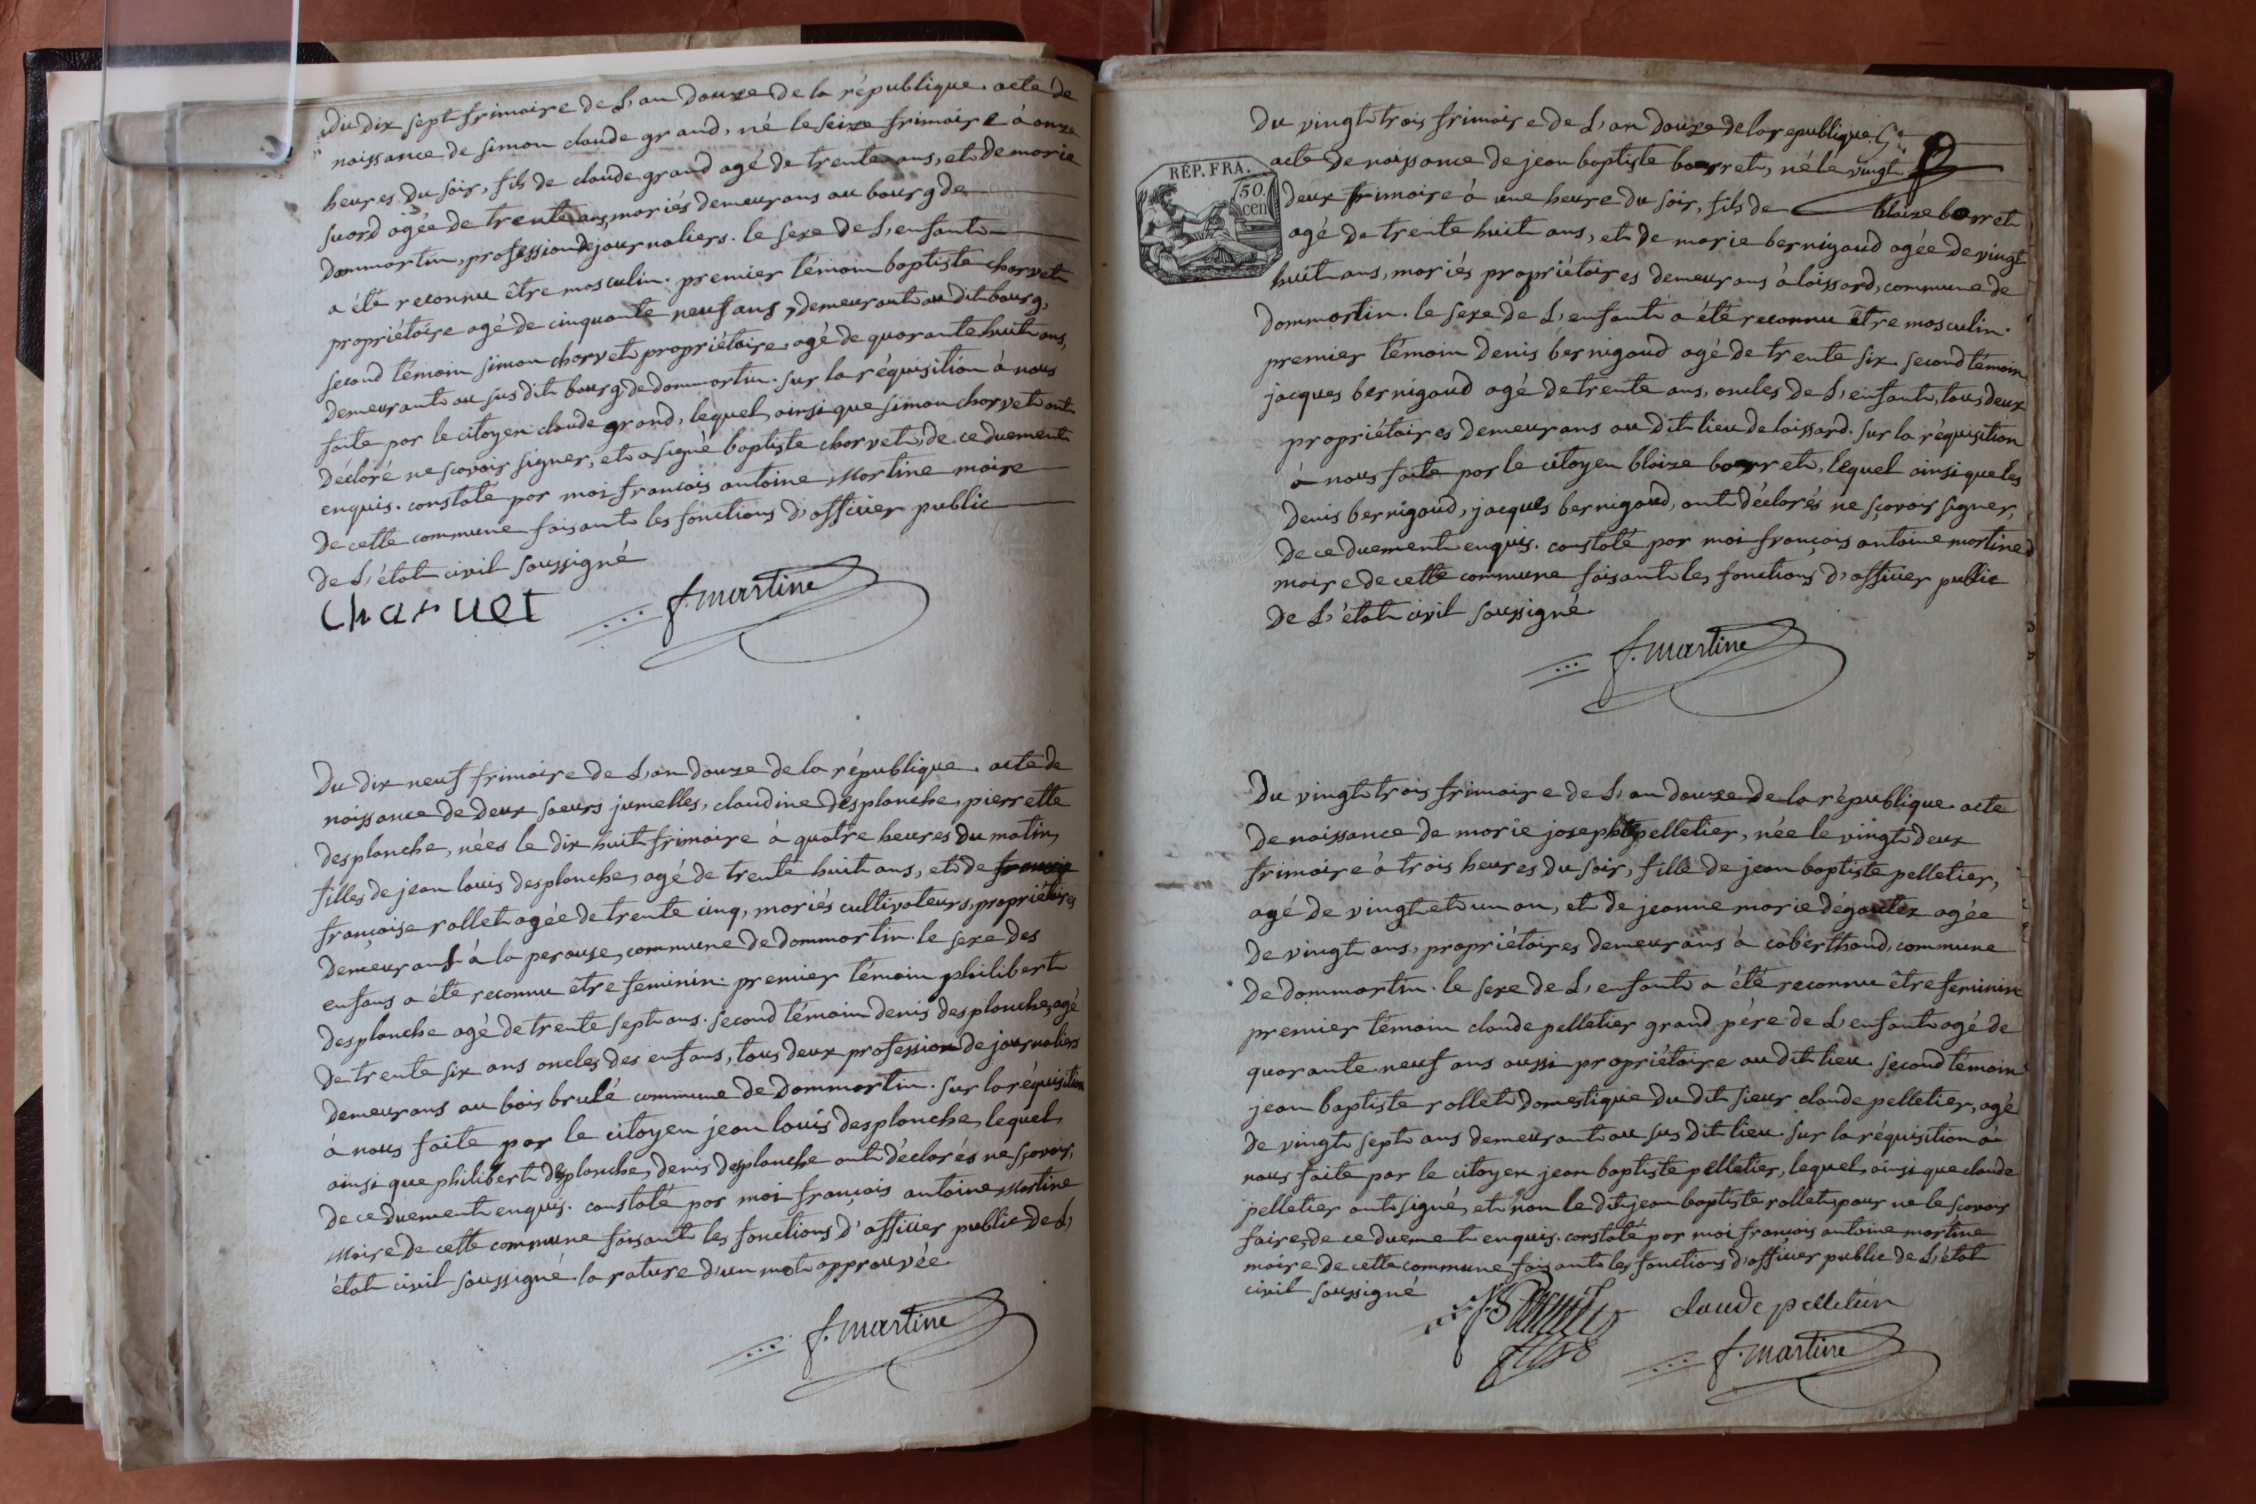 Du dix sept frimaire de L'an douze de la république. acte de
naissance de simon claude grand, né le seize frimaire à onze
heures du soir, fils de claude grand agé de trente ans, et de marie
suord agée de trente ans, mariés demeurans au bourg de
dommartin, profession de journaliers. le sexe de L'enfant
a été reconnu être masculin. premier témoin baptiste charvet
propriétaire agé de cinquante neuf ans, demeurant au dit bourg,
second témoin simon charvet propriétaire, agé de quarante huit ans,
demeurant au sus dit bourg de dommartin. sur la réquisition à nous
faite par le citoyen claude grand, lequel, ainsi que simon charvet ont
déclaré ne sçavoir signer, et a signé baptiste charvet, de ce duement
enquis. constaté par moi françois antoine Martine maire
de cette commune faisant les fonctions d'officier public
de L'état civil soussigné
Charuet
f. martine
Du dix neuf frimaire de L'an douze de la république. acte de
naissance de deux soeurs jumelles, claudine desplanche, pierrette
desplanche, nées le dix huit frimaire à quatre heures du matin,
filles de jean louis desplanche, agé de trente huit ans, et de
françoise rollet agée de trente cinq, mariés cultivateurs, propriétaires
demeurans à la perouse, commune de dommartin. le sexe des
enfans a été reconnu etre feminin. premier témoin philibert
desplanche agé de trente sept ans. second témoin denis desplanche, agé
de trente six ans oncles des enfans, tous deux profession de journaliers
demeurans au bois brulé commune de dommartin. sur la réquisition
à nous faite par le citoyen jean louis desplanche, lequel
ainsi que philibert desplanche, denis desplanche ont déclarés ne sçavoir,
de ce duement enquis. constaté par moi françois antoine Martine
Maire de cette commune faisant les fonctions d'officier public de L'
état civil soussigné. la rature d'un mot approuvée
f. martine
Du vingt trois frimaire de L'an douze de la republique.
RÉP. FRA.
50.
cen
acte de naissance de jean baptiste barret, né le vingt
deux frimaire à une heure du soir, fils de blaize barret
agé de trente huit ans, et de marie bernigaud agée de vingt
huit ans, mariés propriétaires demeurans à loissard, commune de
dommartin. le sexe de L'enfant a été reconnu être masculin.
premier témoin denis bernigaud agé de trente six second témoin
jacques bernigaud agé de trente ans, oncles de L'enfant, tous deux
propriétaires demeurans au dit lieu de loissard. sur la réquisition
à nous faite par le citoyen blaize barret, lequel ainsi que les
denis bernigaud, jacques bernigaud, ont déclarés ne sçavoir signer,
de ce duement enquis. constaté par moi françois antoine martine
maire de cette commune faisant les fonctions d'officier public
de L'état civil soussigné.
f. martine
Du vingt trois frimaire de L'an douze de la république. acte
de naissance de marie josephte pelletier, née le vingt deux
frimaire à trois heures du soir, fille de jean baptiste pelletier,
agé de vingt et un an, et de jeanne marie dégoutex agée
de vingt ans, propriétaires demeurans à coberthoud, commune
de dommartin. le sexe de L'enfant a été reconnu être feminin
premier témoin claude pelletier grand père de L'enfant agé de
quarante neuf ans aussi propriétaire au dit lieu. second témoin
jean baptiste rollet domestique du dit sieur claude pelletier, agé
de vingt sept ans demeurant au sus dit lieu. sur la réquisition à
nous faite par le citoyen jean baptiste pelletier, lequel, ainsi que claude
pelletier ont signé, et non le dit jean baptiste rollet, pour ne le sçavoir
faire, de ce duement enquis. constaté par moi françois antoine martine
maire de cette commune faisant les fonctions d'officier public de L'état
civil soussigné
claude pelletier
f. martine